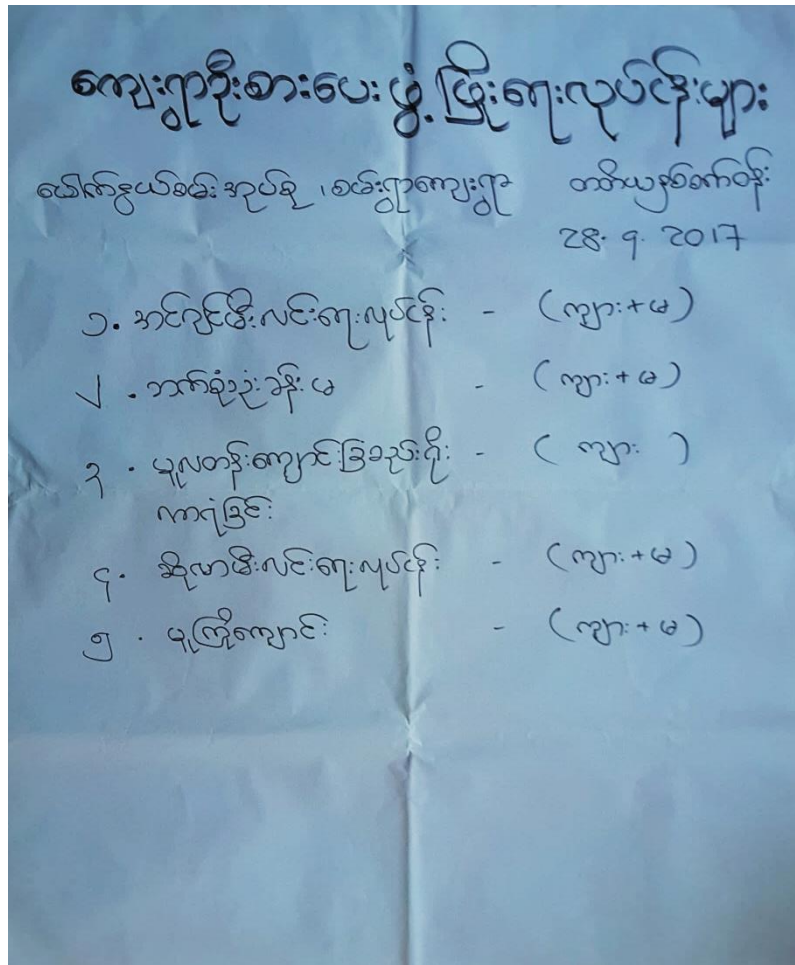 ကျေးရွာဦးစားပေးဖွံ့ဖြိုးရေးလုပ်ငန်းများ
ပေါက်နွယ်စမ်းအုပ်စု ၊ စမ်းရွာကျေးရွာ တတိယနှစ်စက်ဝန်း
28. 9. 2017
၁. အင်ဂျင်မီးလင်းရေးလုပ်ငန်း - (ကျား+မ)
၂. ဘက်စုံသုံးခန်းမ - (ကျား+မ)
၃. မူလတန်းကျောင်းခြံစည်းရိုး - (ကျား )
ကာရံခြင်း
၄. ဆိုလာမီးလင်းရေးလုပ်ငန်း - (ကျား+မ)
၅. မူကြိုကျောင်း - (ကျား+မ)